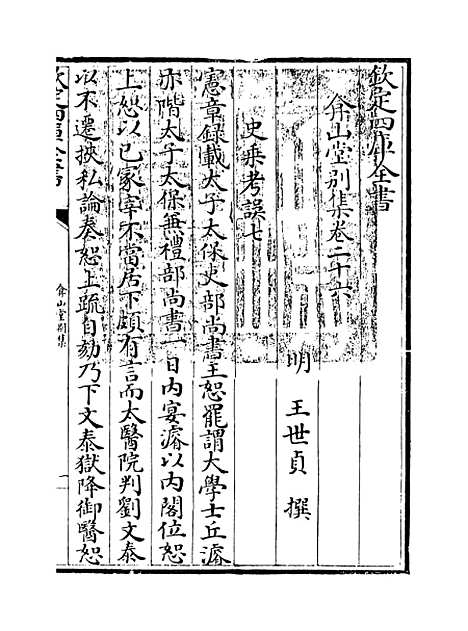 欽定四庫全書
弇山堂别集卷二十六
明 王世貞 撰
史乗考誤七
憲章錄載太子太保吏部尚書王恕罷謂大學士丘濬
亦階太子太保兼禮部尚書一日内宴濬以内閣位恕
上恕以已家宰不當居下頗有言而太醫院判劉文泰
以不遷挾私論奏恕上疏自劾乃下文泰獄降御醫恕
欽定四庫全書
弇山堂别集
一